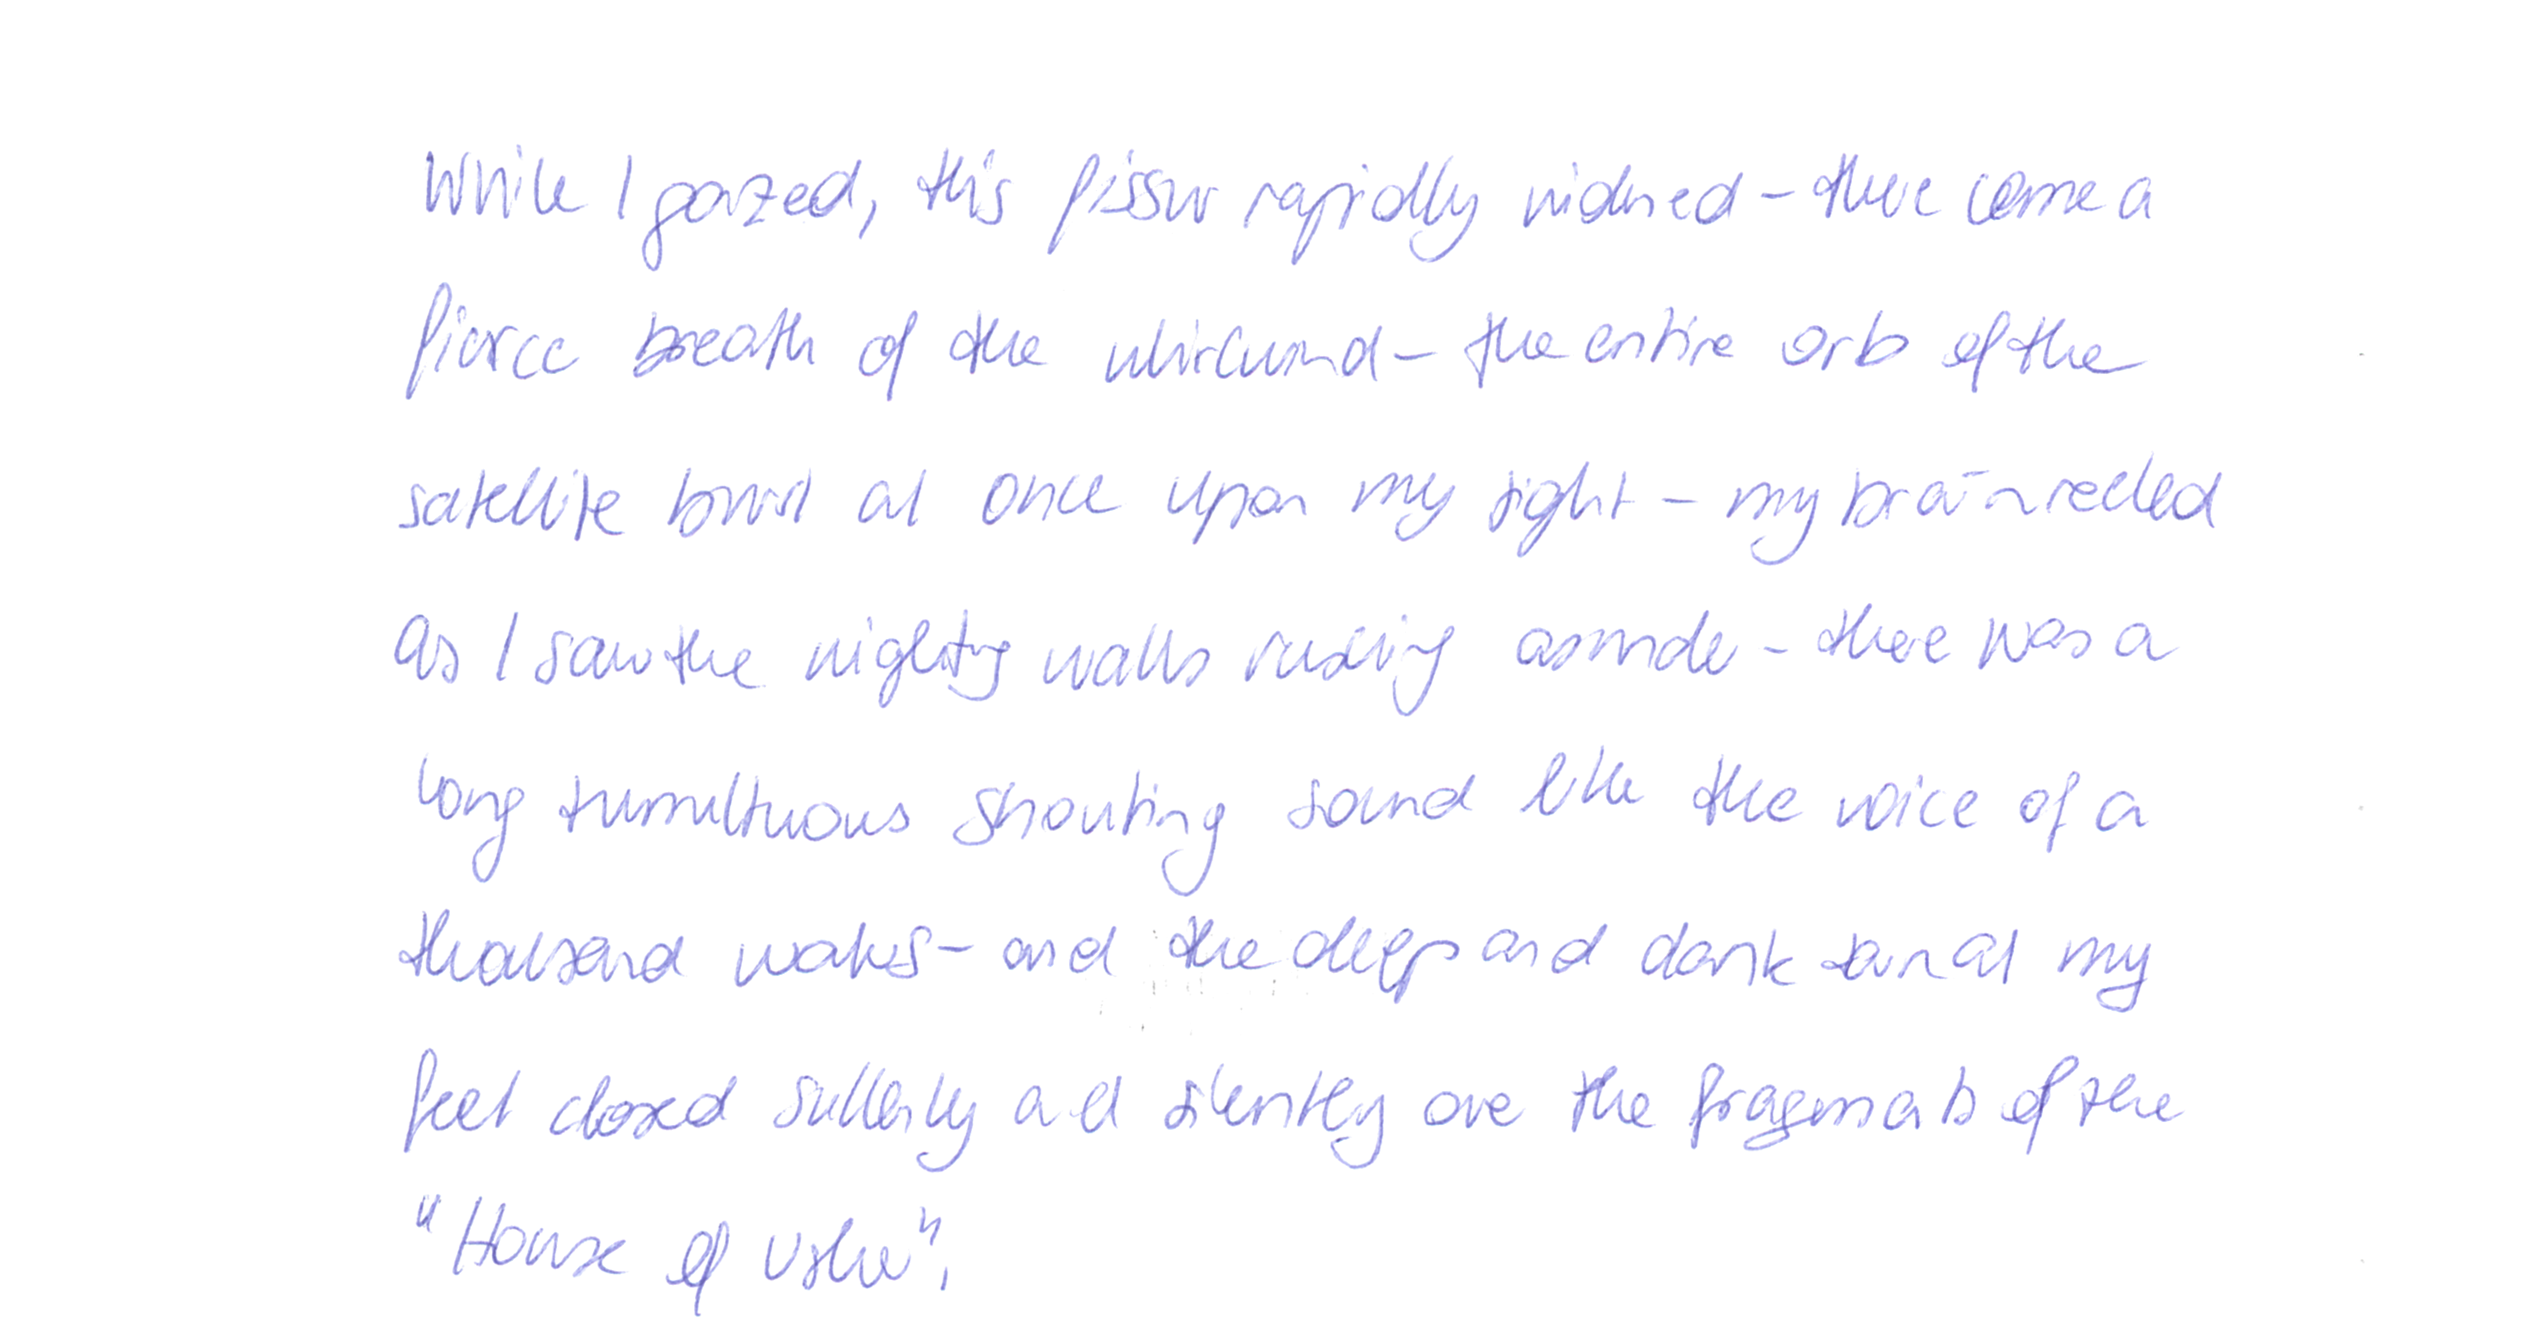 While I gazed, this fissur rapidly widened - there came a
fierce breath of the whirlwind - the entire orb of the
satellite burst at once upon my sight - my brain reeled
as I saw the mighty walls rushing asunder - there was a
long tumultuous shouting sound like the voice of a
thousand waters - and the deep and dank tarn at my
feet closed sullenly and silently over the fragments of the
"House of Usher".